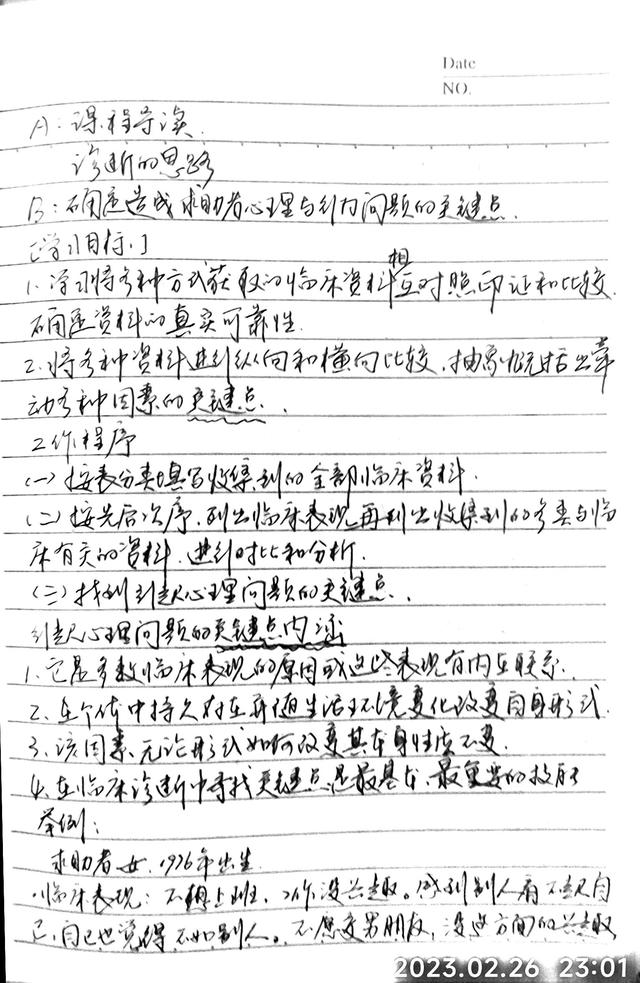 Date
NO.
A：课程导读.
诊断的思路
B：确定造成求助者心理与行为问题的关键点.
[学习目标.]
1. 学习将各种方式获取的临床资料相互对照印证和比较.
确定资料的真实可靠性.
2. 将各种资料进行纵向和横向比较, 抽象概括出牵
动各种因素的关键点.
工作程序
(一) 按表分类填写收集到的全部临床资料.
(二) 按先后次序, 列出临床表现, 再列出收集到的各类与临
床有关的资料, 进行对比和分析.
(三) 找到引起心理问题的关键点.
引起心理问题的关键点内涵
1. 它是多数临床表现的原因或这些表现有内在联系.
2. 在个体中持久存在并随生活环境变化改变自身形式.
3. 该因素, 无论形式如何改变其本身性质不变.
4. 在临床诊断中寻找关键点是最基本, 最重要的技能
举例：
求助者女, 1976年出生
临床表现：不想上班, 工作没兴趣。感到别人看不起自
己, 自己也觉得不如别人。不愿交男朋友, 没这方面的兴趣
2023.02.26 23:01